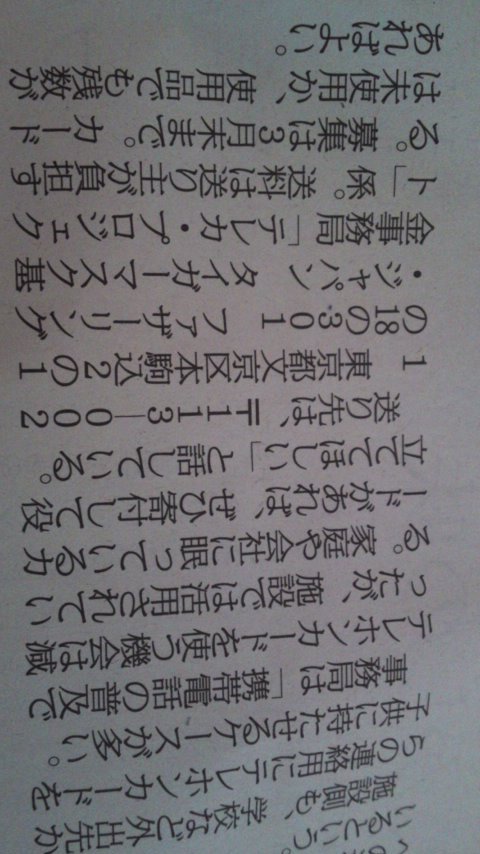 いるという。
施設側も、学校など外出先か
らの連絡用にテレホンカードを
子供に持たせるケースが多い。
事務局は「携帯電話の普及で
テレホンカードを使う機会は減
ったが、施設では活用されてい
る。家庭や会社に眠っているカ
ードがあれば、ぜひ寄付して役
立ててほしい」と話している。
送り先は、〒113―002
1 東京都文京区本駒込2の1
の18の301 ファザーリング
・ジャパン タイガーマスク基
金事務局「テレカ・プロジェク
ト」係。送料は送り主が負担す
る。募集は3月末まで。カード
は未使用か、使用品でも残数が
あればよい。